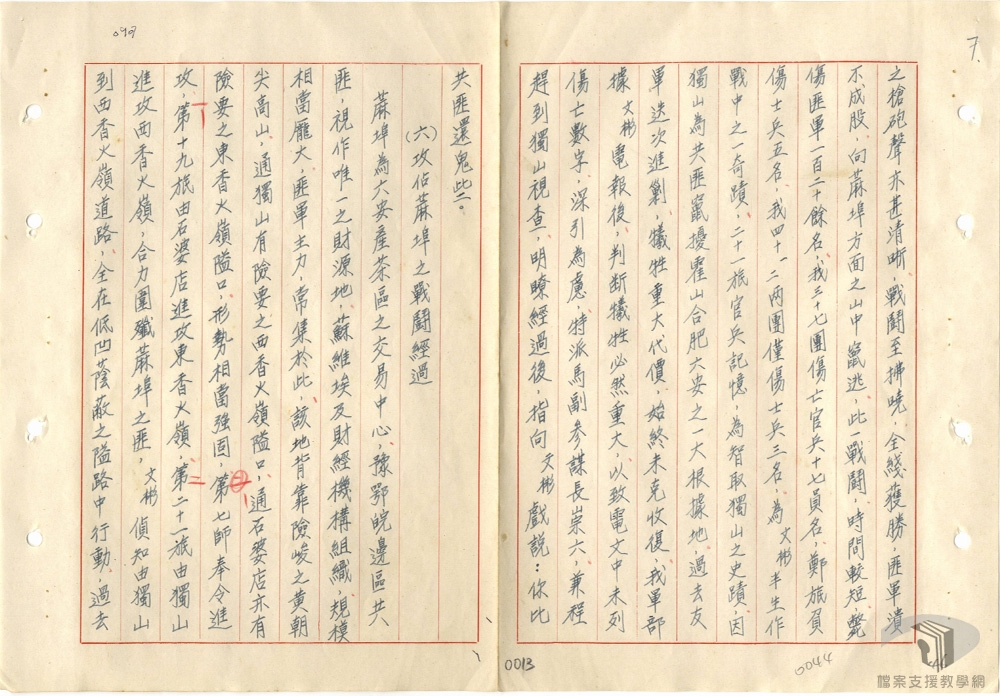 7.
之槍砲聲亦甚清晰，戰鬪至拂曉，全綫獲勝，匪軍潰
不成股，向蔴埠方面之山中竄逃，此一戰鬪，時間較短，斃
傷匪軍一百二十餘名，我三十七團傷亡官兵十七員名，鄭旅負
傷士兵五名，我四十一、二兩團僅傷士兵三名，為文彬半生作
戰中之一奇蹟，二十一旅官兵記憶，為智取獨山之史蹟，因
獨山為共匪竄擾霍山合肥六安之一大根據地，過去友
軍迭次進剿，犧牲重大代價，始終未克收復，我軍部
據文彬電報後，判断犧牲必然重大，以致電文中未列
傷亡數字，深引為慮，特派馬副參謀長崇六，兼程
趕到獨山視查，明瞭經過後，指向文彬戲説：你比
0044
0013
0907
共匪還鬼些。
(六)攻佔蔴埠之戰鬪經過
蔴埠為六安產茶區之交易中心，豫鄂皖邊區共
匪，視作唯一之財源地，蘇維埃及財經機構組織，規模
相當龐大，匪軍主力，常集於此，該地背靠險峻之黄朝
尖高山，通獨山有險要之西香火嶺隘口，通石婆店亦有
險要之東香火嶺隘口，形勢相當强固，第七師奉令進
攻，第十九旅由石婆店進攻東香火嶺，第二十一旅由獨山
進攻西香火嶺，合力圍殲蔴埠之匪，文彬偵知由獨山
到西香火嶺道路，全在低凹蔭蔽之隘路中行動，過去
檔案支援教學網